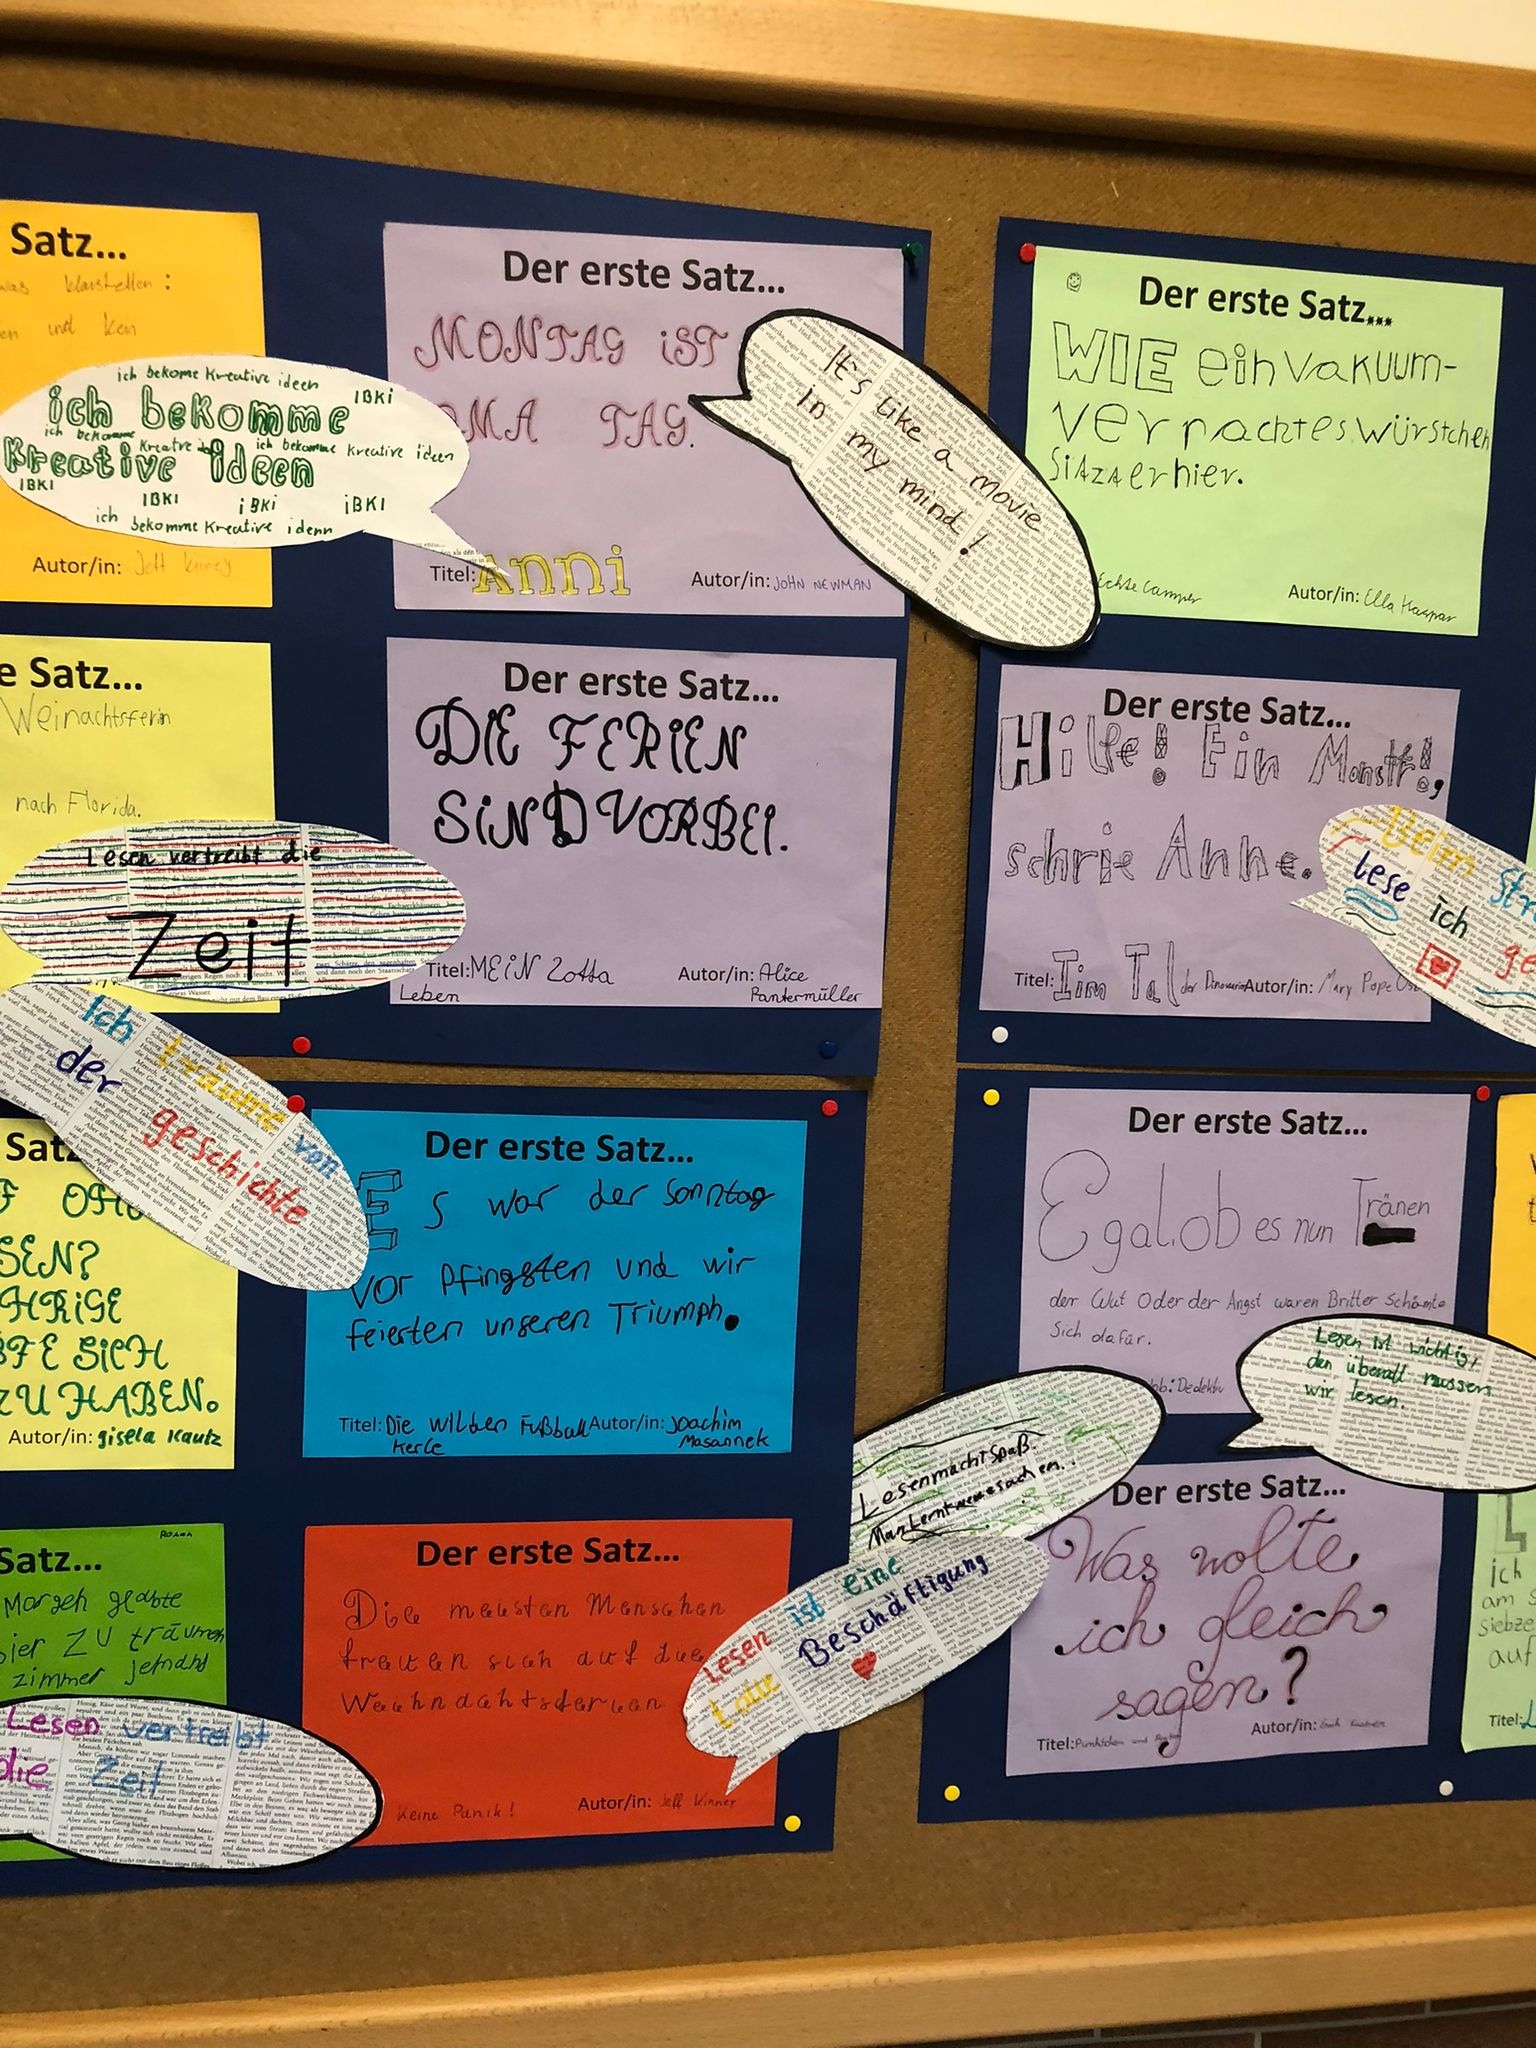 Satz...
was klarstellen:
und kein
Autor/in: Jeff Kinney
ich bekome kreative ideen
IBKI
ich bekomme
ich bekomme kreative ich bekomme kreative ideen
kreative ideen
IBKI
IBKI iBKi iBKI
ich bekomme kreative idenn
Der erste Satz...
MONTAG iST
OMA TAG.
Titel: Anni
Autor/in: JOHN NEWMAN
It's like a movie
in my mind!
Der erste Satz...
WIE ein Vakuum-
vernachtes würstchen
SitZA er hier.
Echte Camper
Autor/in: Ella Kaspar
e Satz...
Weinachtsferin
nach Florida.
Lesen vertreibt die
Zeit
Der erste Satz...
DIE FERIEN
SIND VORBEI.
Titel: MEiN Lotta
Leben
Autor/in: Alice
Pantermüller
Der erste Satz...
Hilfe! Ein Monster!,
schrie Anne.
Titel: Iim Tal der Dinosaurier
Autor/in: Mary Pope Os
Wenn
lese ich
ge
Ich träume von
der geschichte
Satz
SEN?
HRiGE
SiCH
ZU HABEN.
Autor/in: gisela Kautz
Der erste Satz...
Es war der Sonntag
vor Pfingsten und wir
feierten unseren Triumph.
Titel: Die wilden Fußball
Kerle
Autor/in: Joachim
Masannek
Der erste Satz...
Egal. ob es nun Tränen
der Wut Oder der Angst waren Britter Schämte
Sich dafür.
Lesen ist wichtig,
den überall müssen
wir lesen.
Satz...
Morgen glabte
ier ZU träumen
zimmer jemand
Lesen vertreibt
die Zeit
Der erste Satz...
Die meisten Menschen
freuen sich auf die
Weihnachtsferien
Keine Panik!
Autor/in: Jeff Kinney
Lesen macht Spaß.
Man lernt neue sachen.
Lesen ist eine
tolle Beschäftigung
Der erste Satz...
Was wolte
ich gleich
sagen?
Titel: Pünktchen und Anton
Autor/in: Erich Kästner
ich
am S
siebze
auf
Titel: L